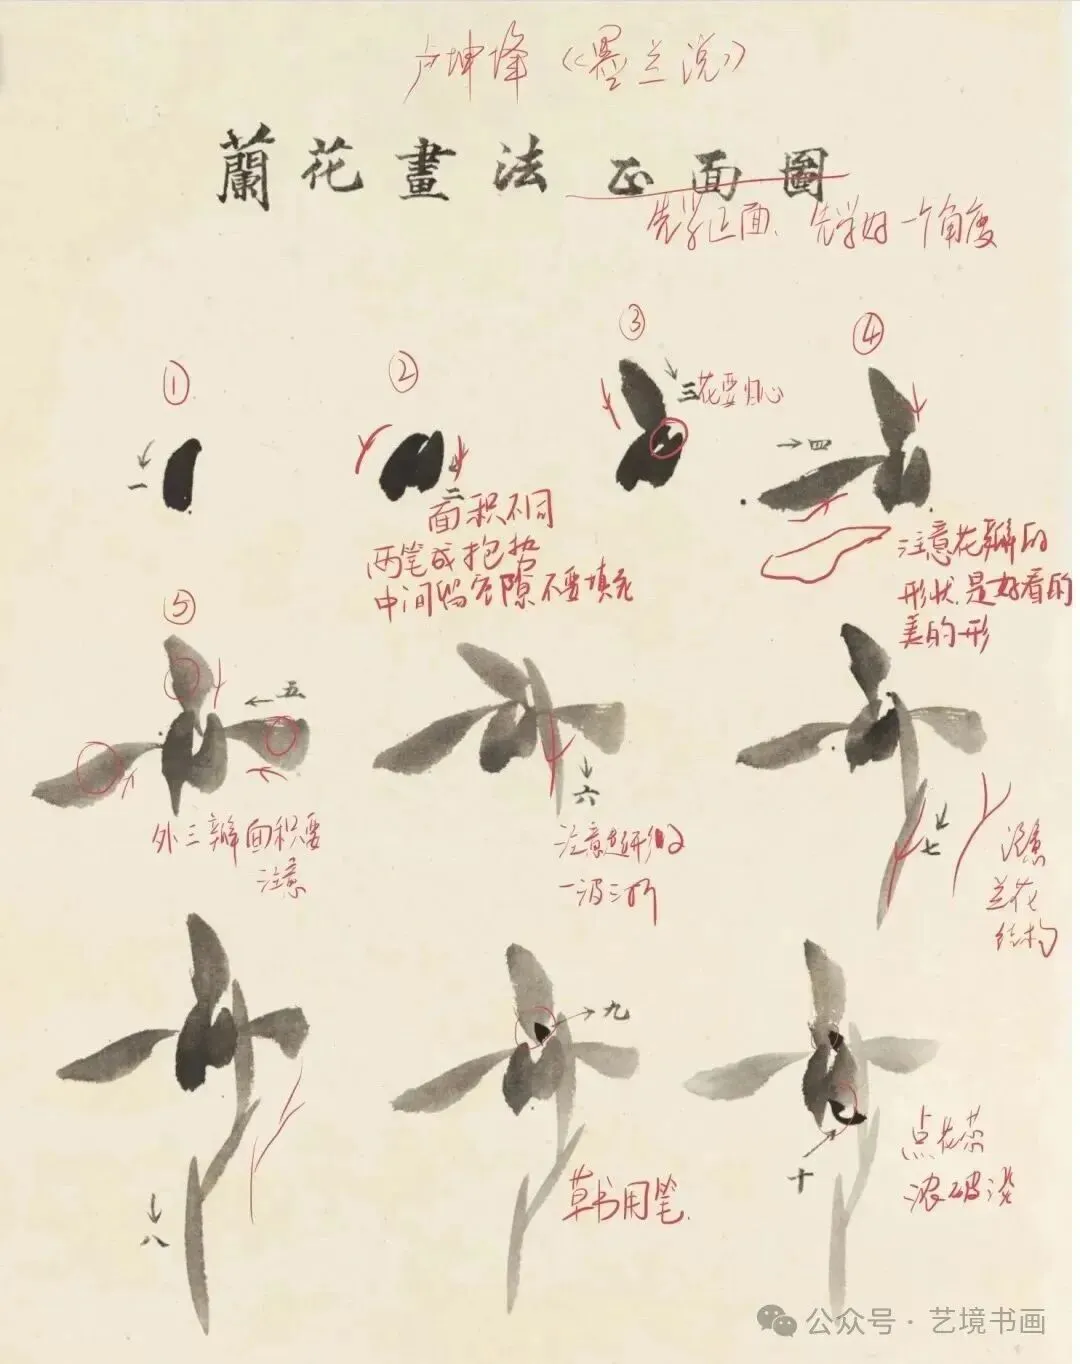 卢坤峰《墨兰说》
蘭花畫法 正面圖
先学正面、先学好一个角度
①
②
③
④
一
二
三
花要归心
四
面积不同
两笔成抱势
中间留空隙不要填死
注意花瓣的
形状.是好看的
美的形
⑤
五
外三瓣面积要
注意
六
一波三折
七
注意
兰花
结构
八
九
草书用笔.
十
点花蕊
浓破淡
公众号·艺境书画